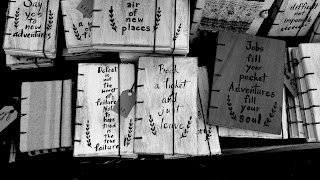 Say yes
to new
adventures
air of new
places
difficult
and
impossible
Jobs
fill your
pocket
Adventures
fill your
soul
Defeat
is not
the worst
of
failures
Not
to have
tried is
the true
failure
Book
a ticket
and
just
leave